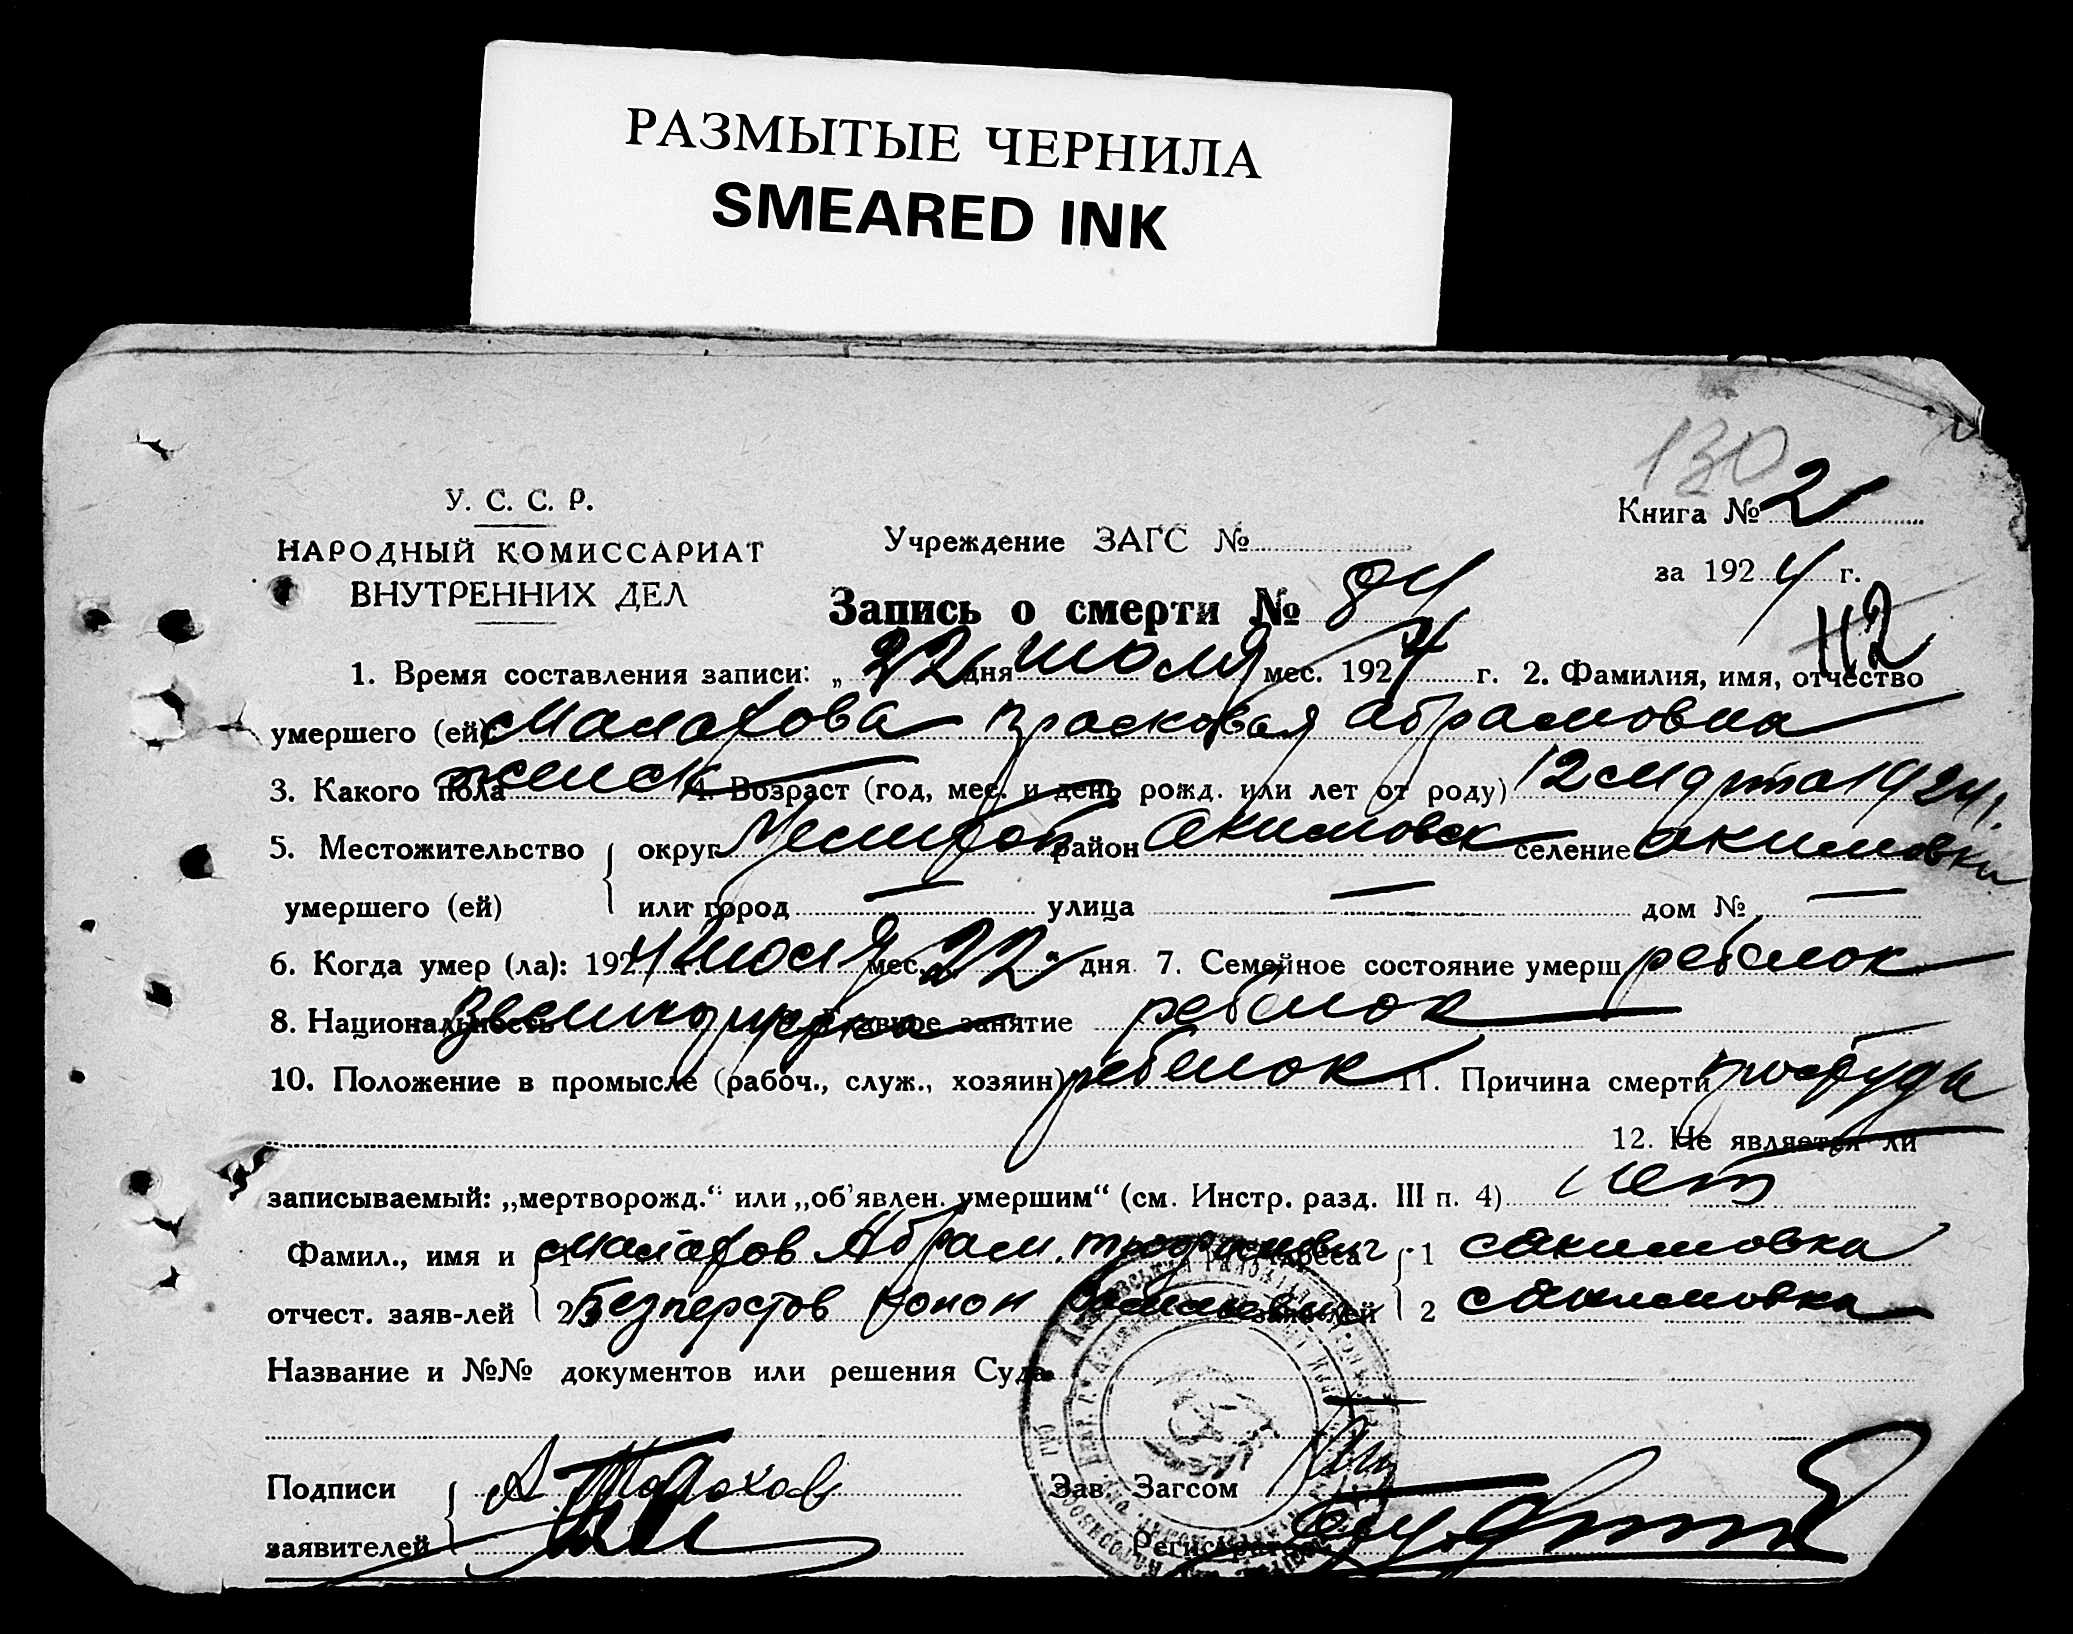 РАЗМЫТЫЕ ЧЕРНИЛА
SMEARED INK
130
У. С. С. Р.
НАРОДНЫЙ КОМИССАРИАТ
ВНУТРЕННИХ ДЕЛ
Учреждение ЗАГС №
Книга № 2
за 1924 г.
Запись о смерти № 84
112
1. Время составления записи: „ 22 дня июля мес. 1924 г. 2. Фамилия, имя, отчество
умершего (ей) Малахова Прасковая Абрамовна
3. Какого пола женск 4. Возраст (год, мес. и день рожд. или лет от роду) 12 марта 1924 г.
5. Местожительство округ район Акимовск селение Акимовки
умершего (ей) или город — улица — дом № —
6. Когда умер (ла): 1924 г. июля мес. „22“ дня. 7. Семейное состояние умерш. ребенок
8. Национальность занятие ребенок
10. Положение в промысле (рабоч., служ., хозяин) ребенок 11. Причина смерти простуда
12. Не является ли
записываемый: „мертворожд.“ или „об'явлен. умершим“ (см. Инстр. разд. III п. 4) нет
Фамил., имя и 1 Малахов Абрам адреса 1 с Акимовка
отчест. заяв-лей 2 Безперстов Конон заявлей 2 с Акимовка
Название и №№ документов или решения Суда
Подписи А. Малахов Зав. Загсом
заявителей Регистратор